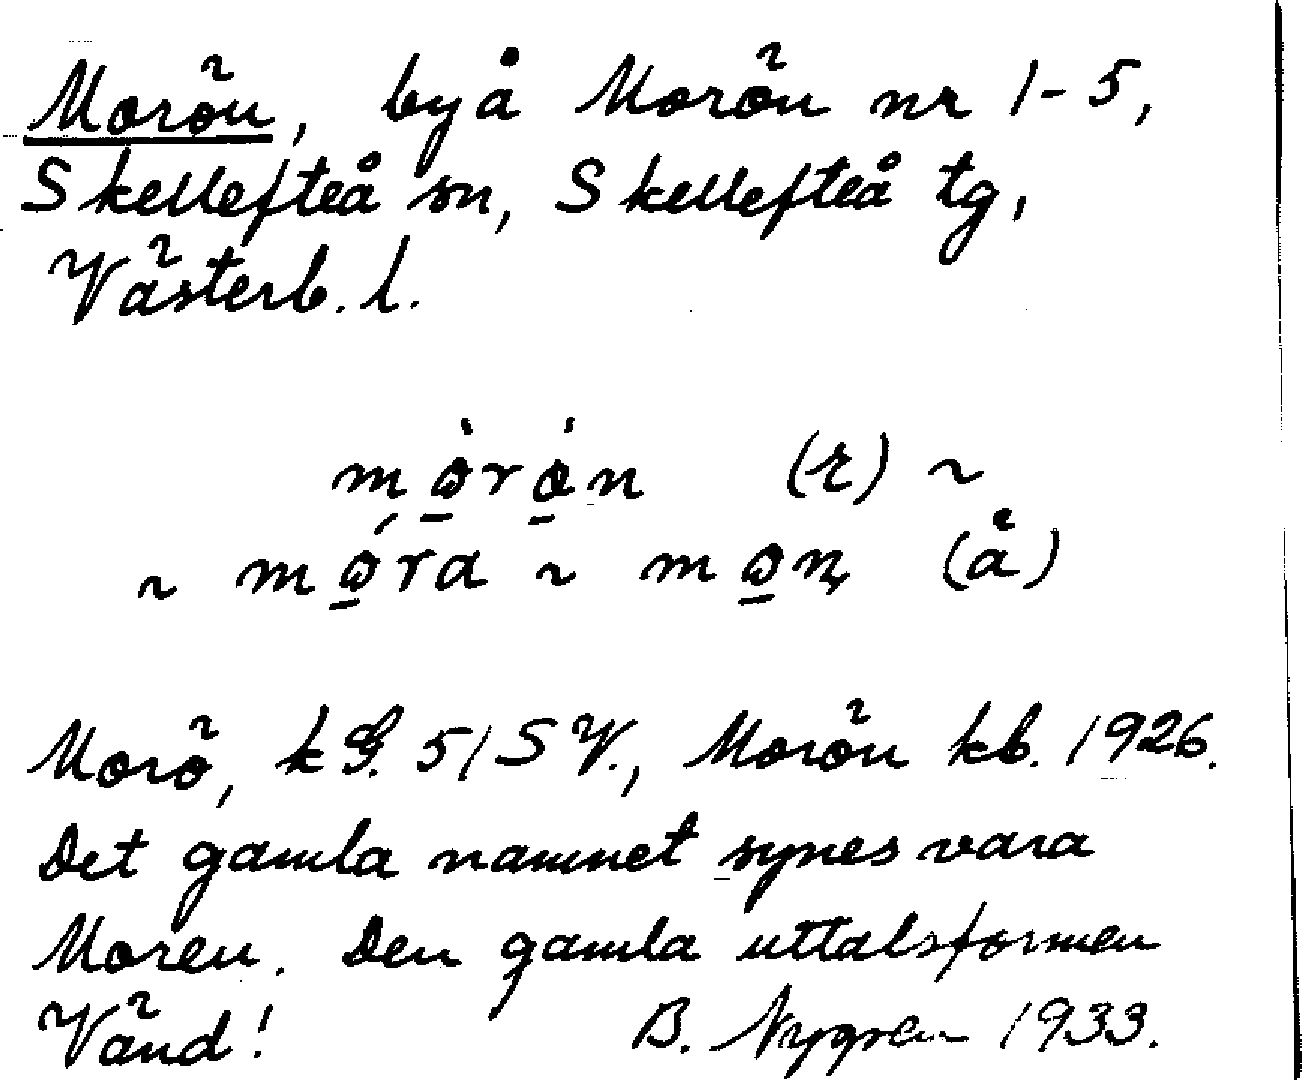 Morön, by å Morön nr 1-5,
Skellefteå sn, Skellefteå tg,
Västerb. l.
mòrón (r) ~
~ móra ~ mon (å)
Morö, kG. 51 SV., Morön kb. 1926.
Det gamla namnet synes vara
Moren. Den gamla uttalsformen
Vänd! B. Nygren 1933.